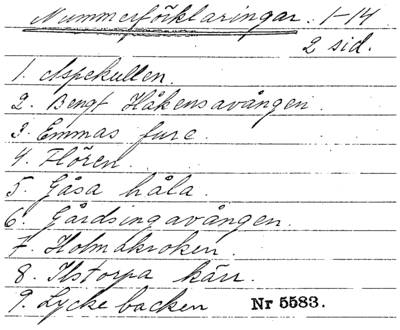 Nummerförklaringar. 1-14
2 sid.
1. Aspekullen.
2. Bengt Håkensavången.
3. Emmas fure.
4. Flören.
5. Gåsa håla.
6. Gårdsingavången.
7. Holmakroken.
8. Ilstorpa kärr.
9. Lycke backen Nr 5583.